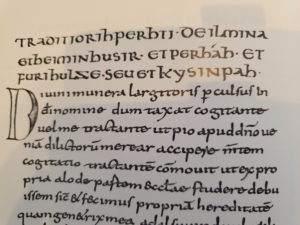 TRADITIO RIHPERHTI · DE ILMINA
ET HEIMINHUSIR · ET PERHAH · ET
FURIHULZE · SEU ET KYSINPAH ·
Diuini munera largitoris p culsus in
dei nomine dum taxat cogitante
uel me tractante ut pio apud dnō ue
niā dilictorū mererar accipere mtem
cogitatio tractante cōmouit ut expro
pria alode pastem eccłae studere debu
issem sic & fecimus propriā hereditatē
quam genetrix mea